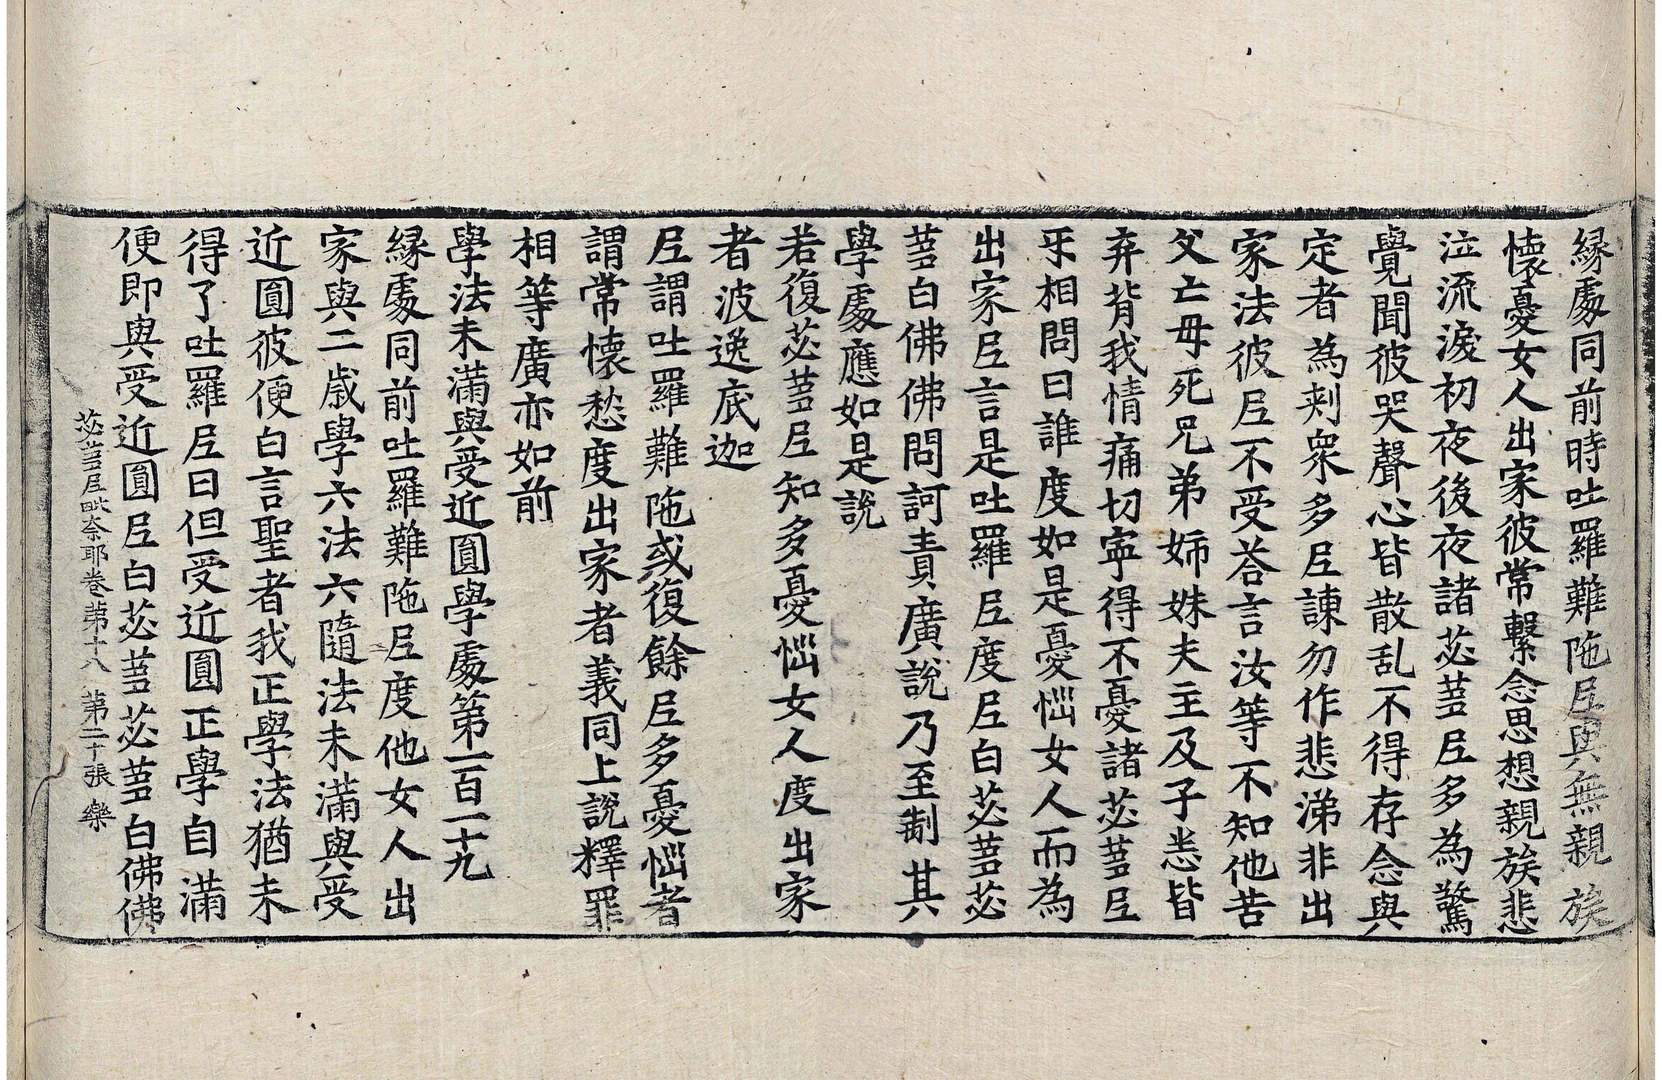 縁處同前時吐羅難陁尼與無親族
懷憂女人出家彼常繫念思想親族悲
泣流淚初夜後夜諸苾芻尼多為驚
覺聞彼哭聲心皆散乱不得存念與
定者為剌衆多尼諫勿作悲涕非出
家法彼尼不受荅言汝等不知他苦
父亡母死兄弟姉妹夫主及子悉皆
弃背我情痛切寜得不憂諸苾芻尼
㸦相問曰誰度如是憂惱女人而為
出家尼言是吐羅尼度尼白苾芻苾
芻白佛佛問訶責廣說乃至制其
學處應如是說
若復苾芻尼知多憂惱女人度出家
者波逸底迦
尼謂吐羅難陁或復餘尼多憂惱者
謂常懷愁度出家者義同上說釋罪
相等廣亦如前
學法未滿與受近圓學處第一百一十九
縁處同前吐羅難陁尼度他女人出
家與二歳學六法六隨法未滿與受
近圓彼便白言聖者我正學法猶未
得了吐羅尼曰但受近圓正學自滿
便即與受近圓尼白苾芻苾芻白佛佛
苾芻尼毗奈耶卷第十八 第二十張 樂